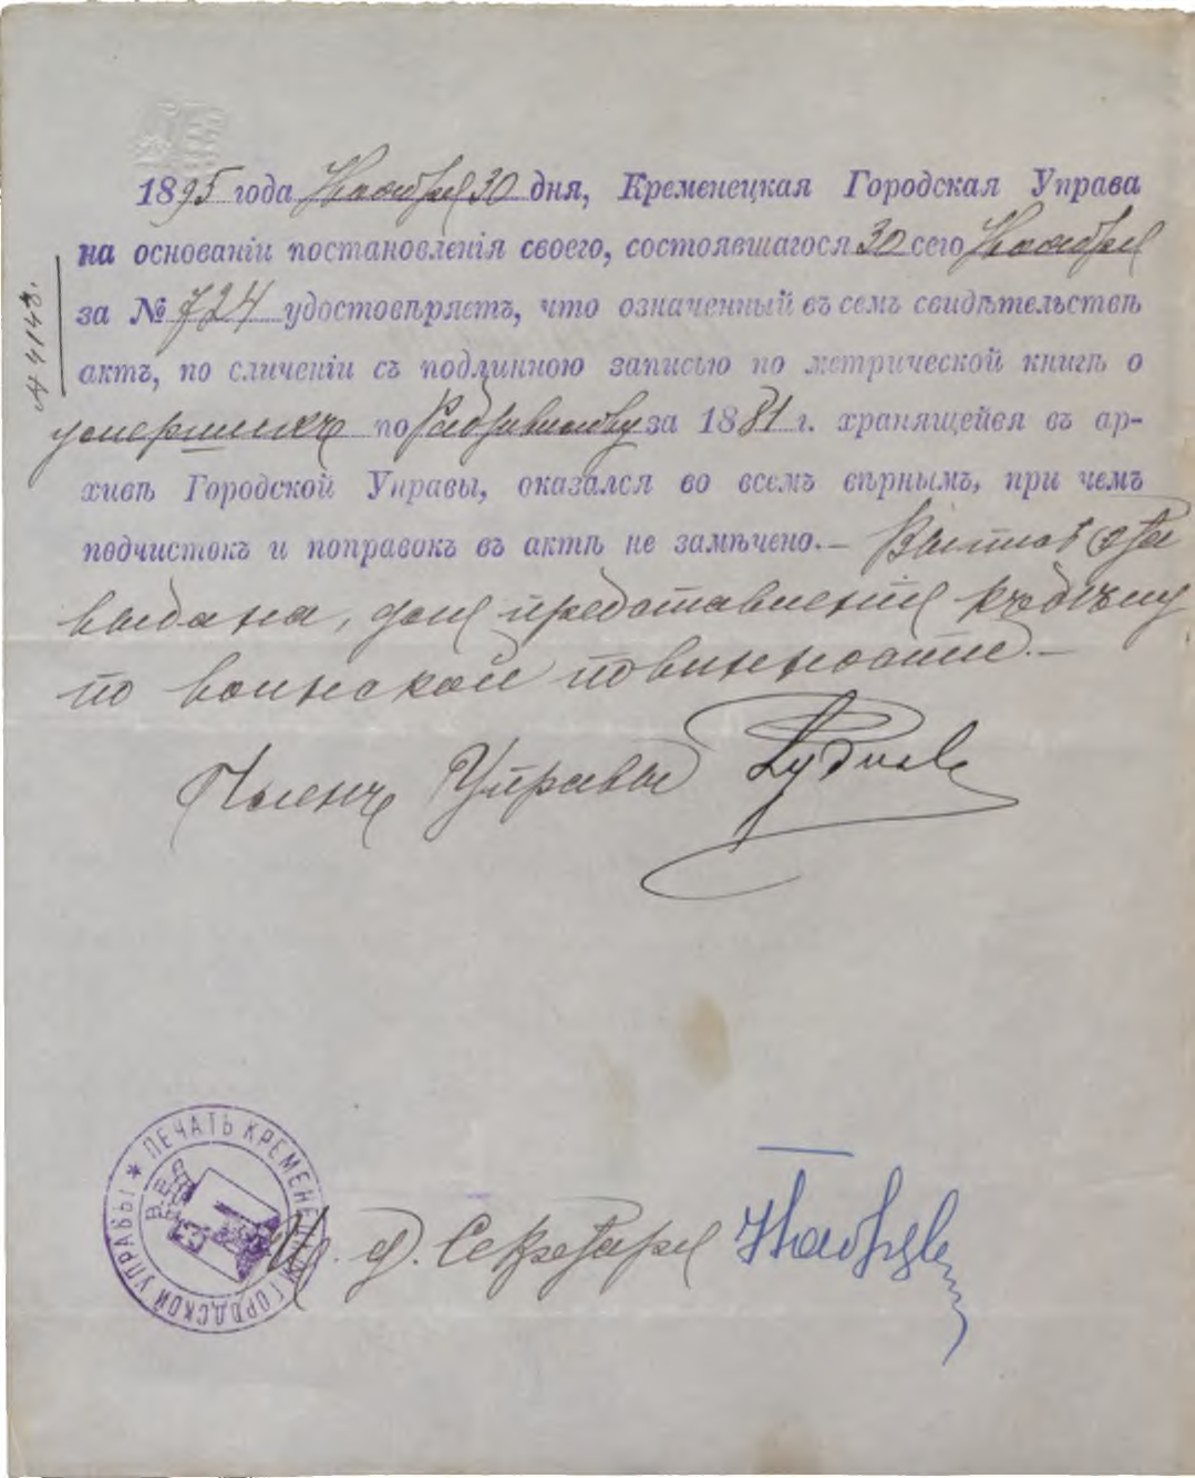 1895 года Ноября 30 дня, Кременецкая Городская Управа
на основаніи постановленія своего, состоявшагося 30 сего Ноября
за № 724 удостовѣряетъ, что означенный въ семъ свидѣтельствѣ
актъ, по сличеніи съ подлинною записью по метрической книгѣ о
умершихъ по Радзивилову за 1881 г. хранящейся въ ар-
хивѣ Городской Управы, оказался во всемъ вѣрнымъ, при чемъ
подчистокъ и поправокъ въ актѣ не замѣчено.—
выдана, для представленія къ дѣлу
по воинской повинности.—
Членъ Управы
И. д. Секретаря
* ПЕЧАТЬ КРЕМЕНЕЦКОЙ ГОРОДСКОЙ УПРАВЫ